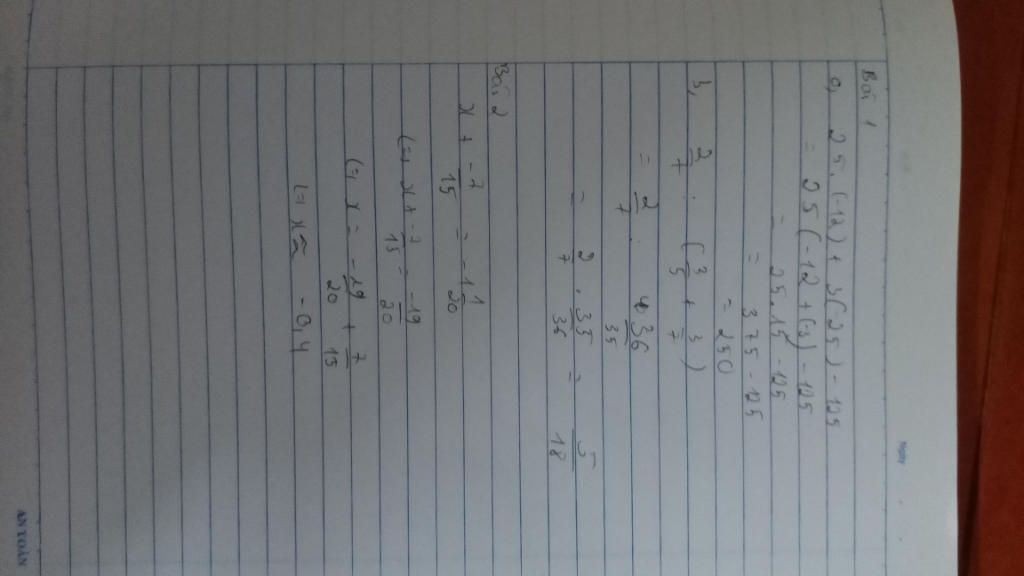 Ngày
Bài 1
a, 25.(-12) + 3(-25) - 125
= 25(-12 + (-3) - 125
= 25.15 - 125
= 375 - 125
= 250
b, 2/7 : (3/5 + 3/7)
= 2/7 : 36/35
= 2/7 . 35/36 = 5/18
Bài 2
x + -7/15 = -1 1/20
(=) x + -7/15 = -19/20
(=) x = -19/20 + 7/15
(=) x ≈ -0,4
AN TOÀN